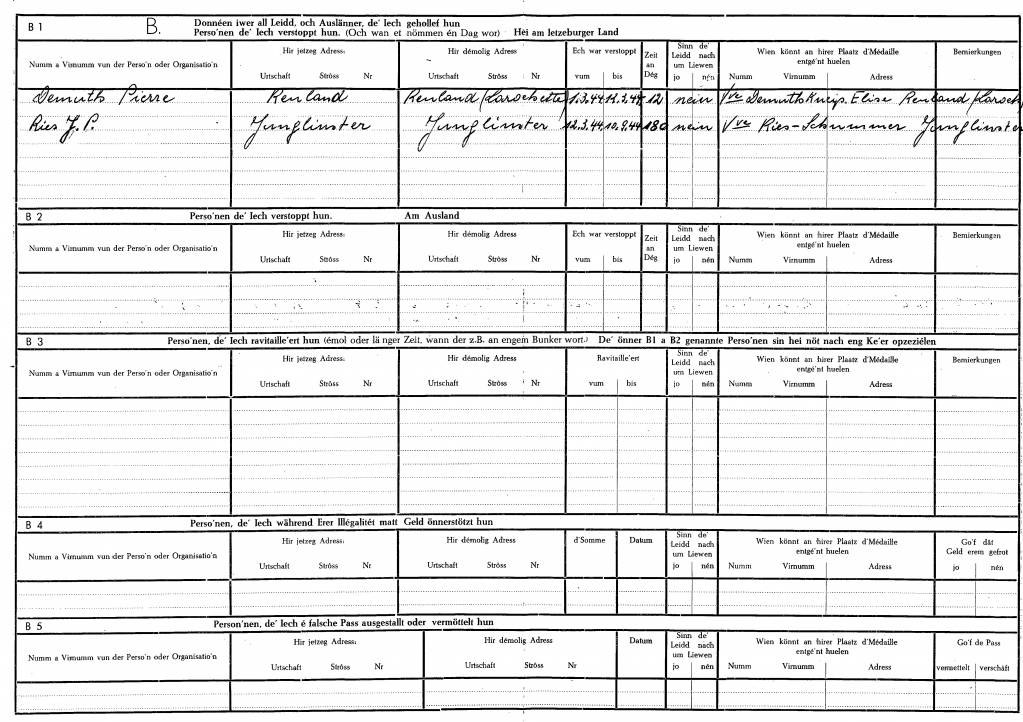 B 1 B. Donnéen iwer all Leidd, och Auslänner, de' Iech gehollef hun
Perso'nen de' Iech verstoppt hun. (Och wan et nömmen én Dag wor) Hei am letzeburger Land
Numm a Virnumm vun der Perso'n oder Organisatio'n Hir jetzeg Adress: Hir démolig Adress Ech war verstoppt Zeit an Dég Sinn de' Leidd nach um Liewen Wien könnt an hirer Plaatz d'Médaille entgé'nt huelen Bemierkungen
Urtschaft Ströss Nr Urtschaft Ströss Nr vum bis jo nén Numm Virnumm Adress
Demuth Pierre Reuland Reuland (Larochette) 1.3.44 12.3.44 12 nein Vve Demuth Kneip. Elise Reuland
Ries J. P. Junglinster Junglinster 12.3.44 10.9.44 180 nein Vve Ries-Schummer Junglinster
B 2 Perso'nen de' Iech verstoppt hun. Am Ausland
Numm a Virnumm vun der Perso'n oder Organisatio'n Hir jetzeg Adress: Hir démolig Adress Ech war verstoppt Zeit an Dég Sinn de' Leidd nach um Liewen Wien könnt an hirer Plaatz d'Médaille entgé'nt huelen Bemierkungen
Urtschaft Ströss Nr Urtschaft Ströss Nr vum bis jo nén Numm Virnumm Adress
B 3 Perso'nen, de' Iech ravitaille'ert hun (émol oder länger Zeit, wann der z.B. an engem Bunker wort.) De' önner B1 a B2 genannte Perso'nen sin hei nöt nach eng Ke'er opzeziélen
Numm a Virnumm vun der Perso'n oder Organisatio'n Hir jetzeg Adress: Hir démolig Adress Ravitaille'ert Sinn de' Leidd nach um Liewen Wien könnt an hirer Plaatz d'Médaille entgé'nt huelen Bemierkungen
Urtschaft Ströss Nr Urtschaft Ströss Nr vum bis jo nén Numm Virnumm Adress
B 4 Perso'nen, de' Iech während Erer Illégalitét matt Geld önnerstötzt hun
Numm a Virnumm vun der Perso'n oder Organisatio'n Hir jetzeg Adress: Hir démolig Adress d'Somme Datum Sinn de' Leidd nach um Liewen Wien könnt an hirer Plaatz d'Médaille entgé'nt huelen Go'f dât Geld erem gefrot
Urtschaft Ströss Nr Urtschaft Ströss Nr jo nén Numm Virnumm Adress jo nén
B 5 Person'nen, de' Iech é falsche Pass ausgestallt oder vermöttelt hun
Numm a Virnumm vun der Perso'n oder Organisatio'n Hir jetzeg Adress: Hir démolig Adress Datum Sinn de' Leidd nach um Liewen Wien könnt an hirer Plaatz d'Médaille entgé'nt huelen Go'f de Pass
Urtschaft Ströss Nr Urtschaft Ströss Nr jo nén Numm Virnumm Adress vermettelt verschâft